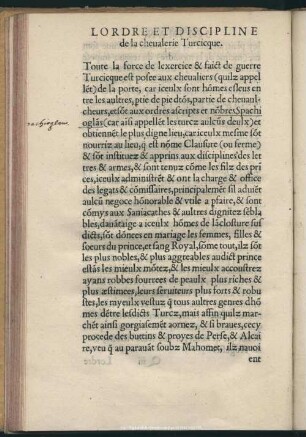 LORDRE ET DISCIPLINE
de la cheualerie Turcicque.
Toute la force de lexercice & faict de guerre
Turcicque est posee aux cheualiers (quilz appel
lẽt) de la porte, car iceulx sont hõmes esleus en
tre les aultres, ptie de pie dtõs, partie de cheuaul-
cheurs, et sõt aux ordres ascripts et nõbres, Spachi
oglãs (car aisi appellẽt les turcz aulcũs deulx) et
obtiennẽt le plus digne lieu, car iceulx mesme sõt
nourriz au lieu, q̃ est nõme Clausure (ou ferme)
& sõt instituez & apprins aux disciplines des let
tres & armes, & sont tenuz cõme les filz des prin
ces, iceulx administrẽt & ont la charge & office
des legats & cõmissaires, principalemẽt sil aduiẽt
aulcũ negoce hõnorable & vtile a pfaire, & sont
cõmys aux Saniacathes & aultres dignitez sẽbla
bles, dauãtaige a iceulx hõmes de lãclosture sus
dicts, sõt dõnees en mariage les femmes, filles &
soeurs du prince, et sang Royal, sõme tout, ilz sõt
les plus nobles, & plus aggreables audict prince
estãs les mieulx mõtez, & les mieulx accoustrez
ayans robbes fourrees de peaulx plus riches &
plus æstimees, leurs seruiteurs plus forts & robu
stes, les rayeulx vestuz q̃ tous aultres genres dhõ
mes dẽtre lesdicts Turcz, mais assin quilz mar-
chẽt ainsi gorgiasemẽt aornez, & si braues, cecy
procede des buttins & proyes de Perse, & Alcai
re, veu q̃ au parauãt soubz Mahomet, ilz nauoi
ent